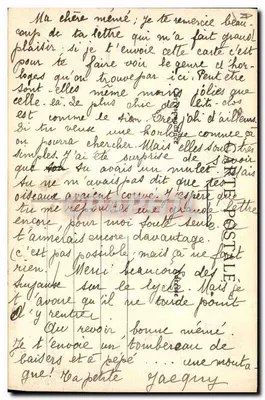 Ma chère mémé; je te remercie beau-
coup de ta lettre qui m'a fait grand
plaisir; si je t'envoie cette carte c'est
pour te faire voir le genre d'hor-
loges qu'on trouve par ici. Peut être
sont-elles même moins jolies que
celle-là. Le plus chic des
est comme le sien très joli d'ailleurs.
Si tu veux une horloge comme ça
on pourra chercher. Mais elles sont très
simples. J'ai été surprise de savoir
que tu avais un mulet. Mais
tu ne m'avais pas dit que tes
oiseaux avaient couvé. J'espère que
tu me lettre
encore, pour moi toute seule. Je
t'aimerais encore davantage.
c'est pas possible, mais ça ne fait
rien! Merci beaucoup des
sur le lycée. Mais je
t'avoue qu'il ne tarde point
d'y rentrer.
Au revoir bonne mémé.
Je t'envoie un tombereau de
baisers et à pépé .... une monta-
gne! Ta petite Jacquy
CARTE POSTALE